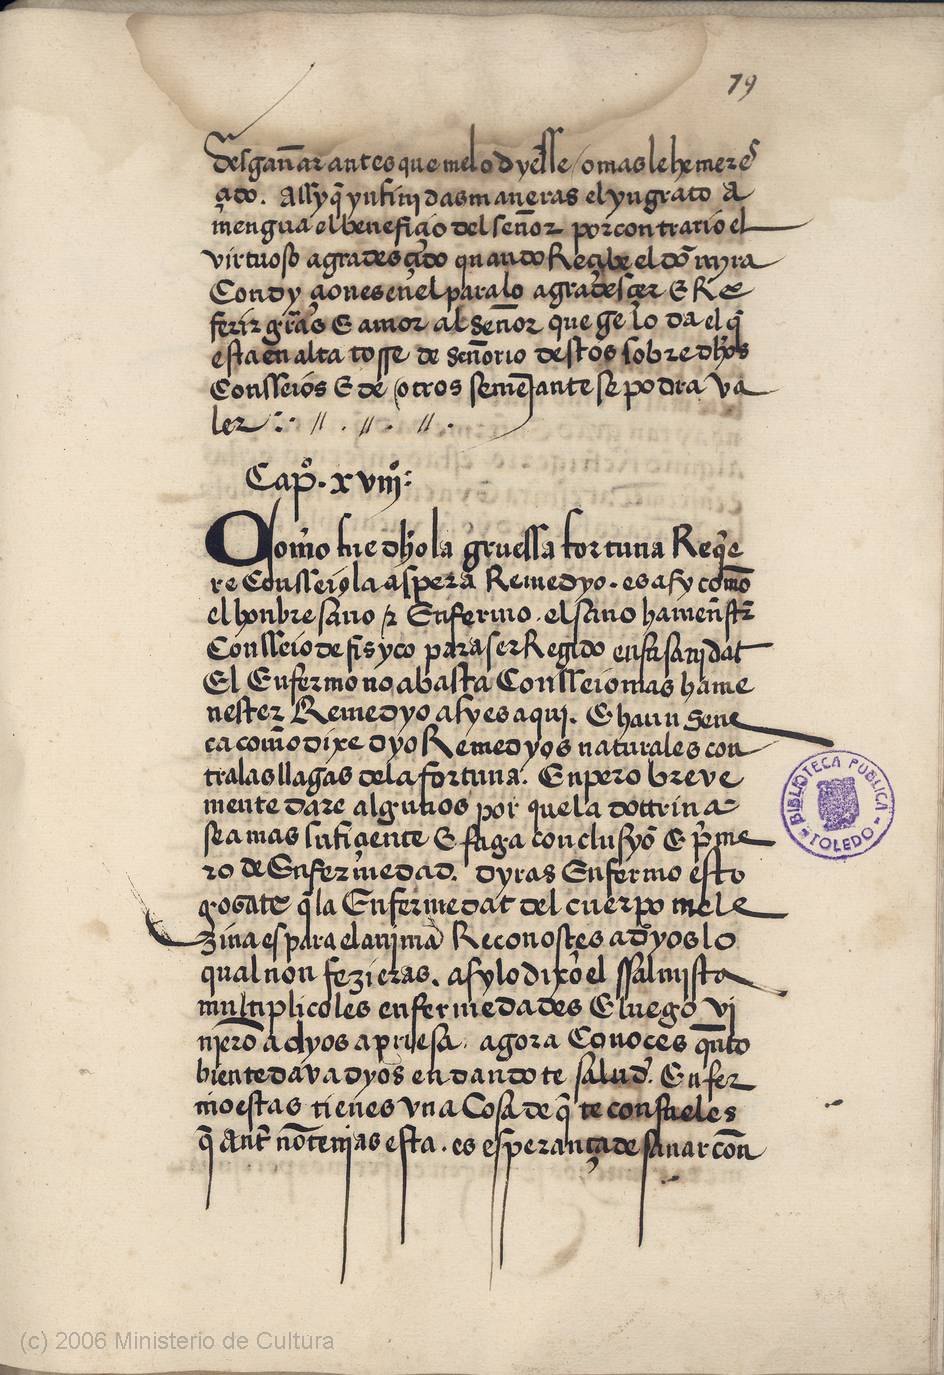 79
desgañar antes que me lo dyesse / o mas le he mereς
çido. Assy q̃ ynfinidas maneras el yngrato A
mengua el benefiçio del señor por contrario el
virtuoso agradesçido quando Reçibe el dõ myra
Condyçiones en el para lo agradesçer E Re
ferir grãs E amor al señor que ge lo da el q̃
esta en alta tosse de señorio destos sobre dhos
Consseios E de otros semeJante se podra va
ler
Capº. xviijº
Como fue dho la gruessa fortuna Reqe
re Consseio la aspera Remedyo. es asy como
el honbre sano r Enfermo. el sano ha menest̃r
Consseio de fisyco para ser Regido en su sanjdat
El Enfermo no abasta Consseio mas ha me
nester Remedyo asy es aqui. E haun Sene
ca como dixe dyo Remedyos naturales con
tra las llagas de la fortuna. Enpero breve
mente dare algunos por que la dottrina
sea mas sufiçiente E faga conclusyõ E p̃me
ro de Enfermedad. dyras Enfermo esto
gosate q̃ la Enfermedat del cuerpo mele
zina es para el anjma Reconosçes a dyos lo
qual non fezieras. asy lo dixo el ssalmista
multiplicoles enfermedades E luego vi
njerõ a dyos apriesa. agora Conoces qñto
bien te dava dyos en dando te salud. Enfer
mo estas tienes vna Cosa de q̃ te consueles
q̃ Ant̃ nõ tenjas esta. es esperança de sanar cõn
BIBLIOTECA PUBLICA
TOLEDO
(c) 2006 Ministerio de Cultura